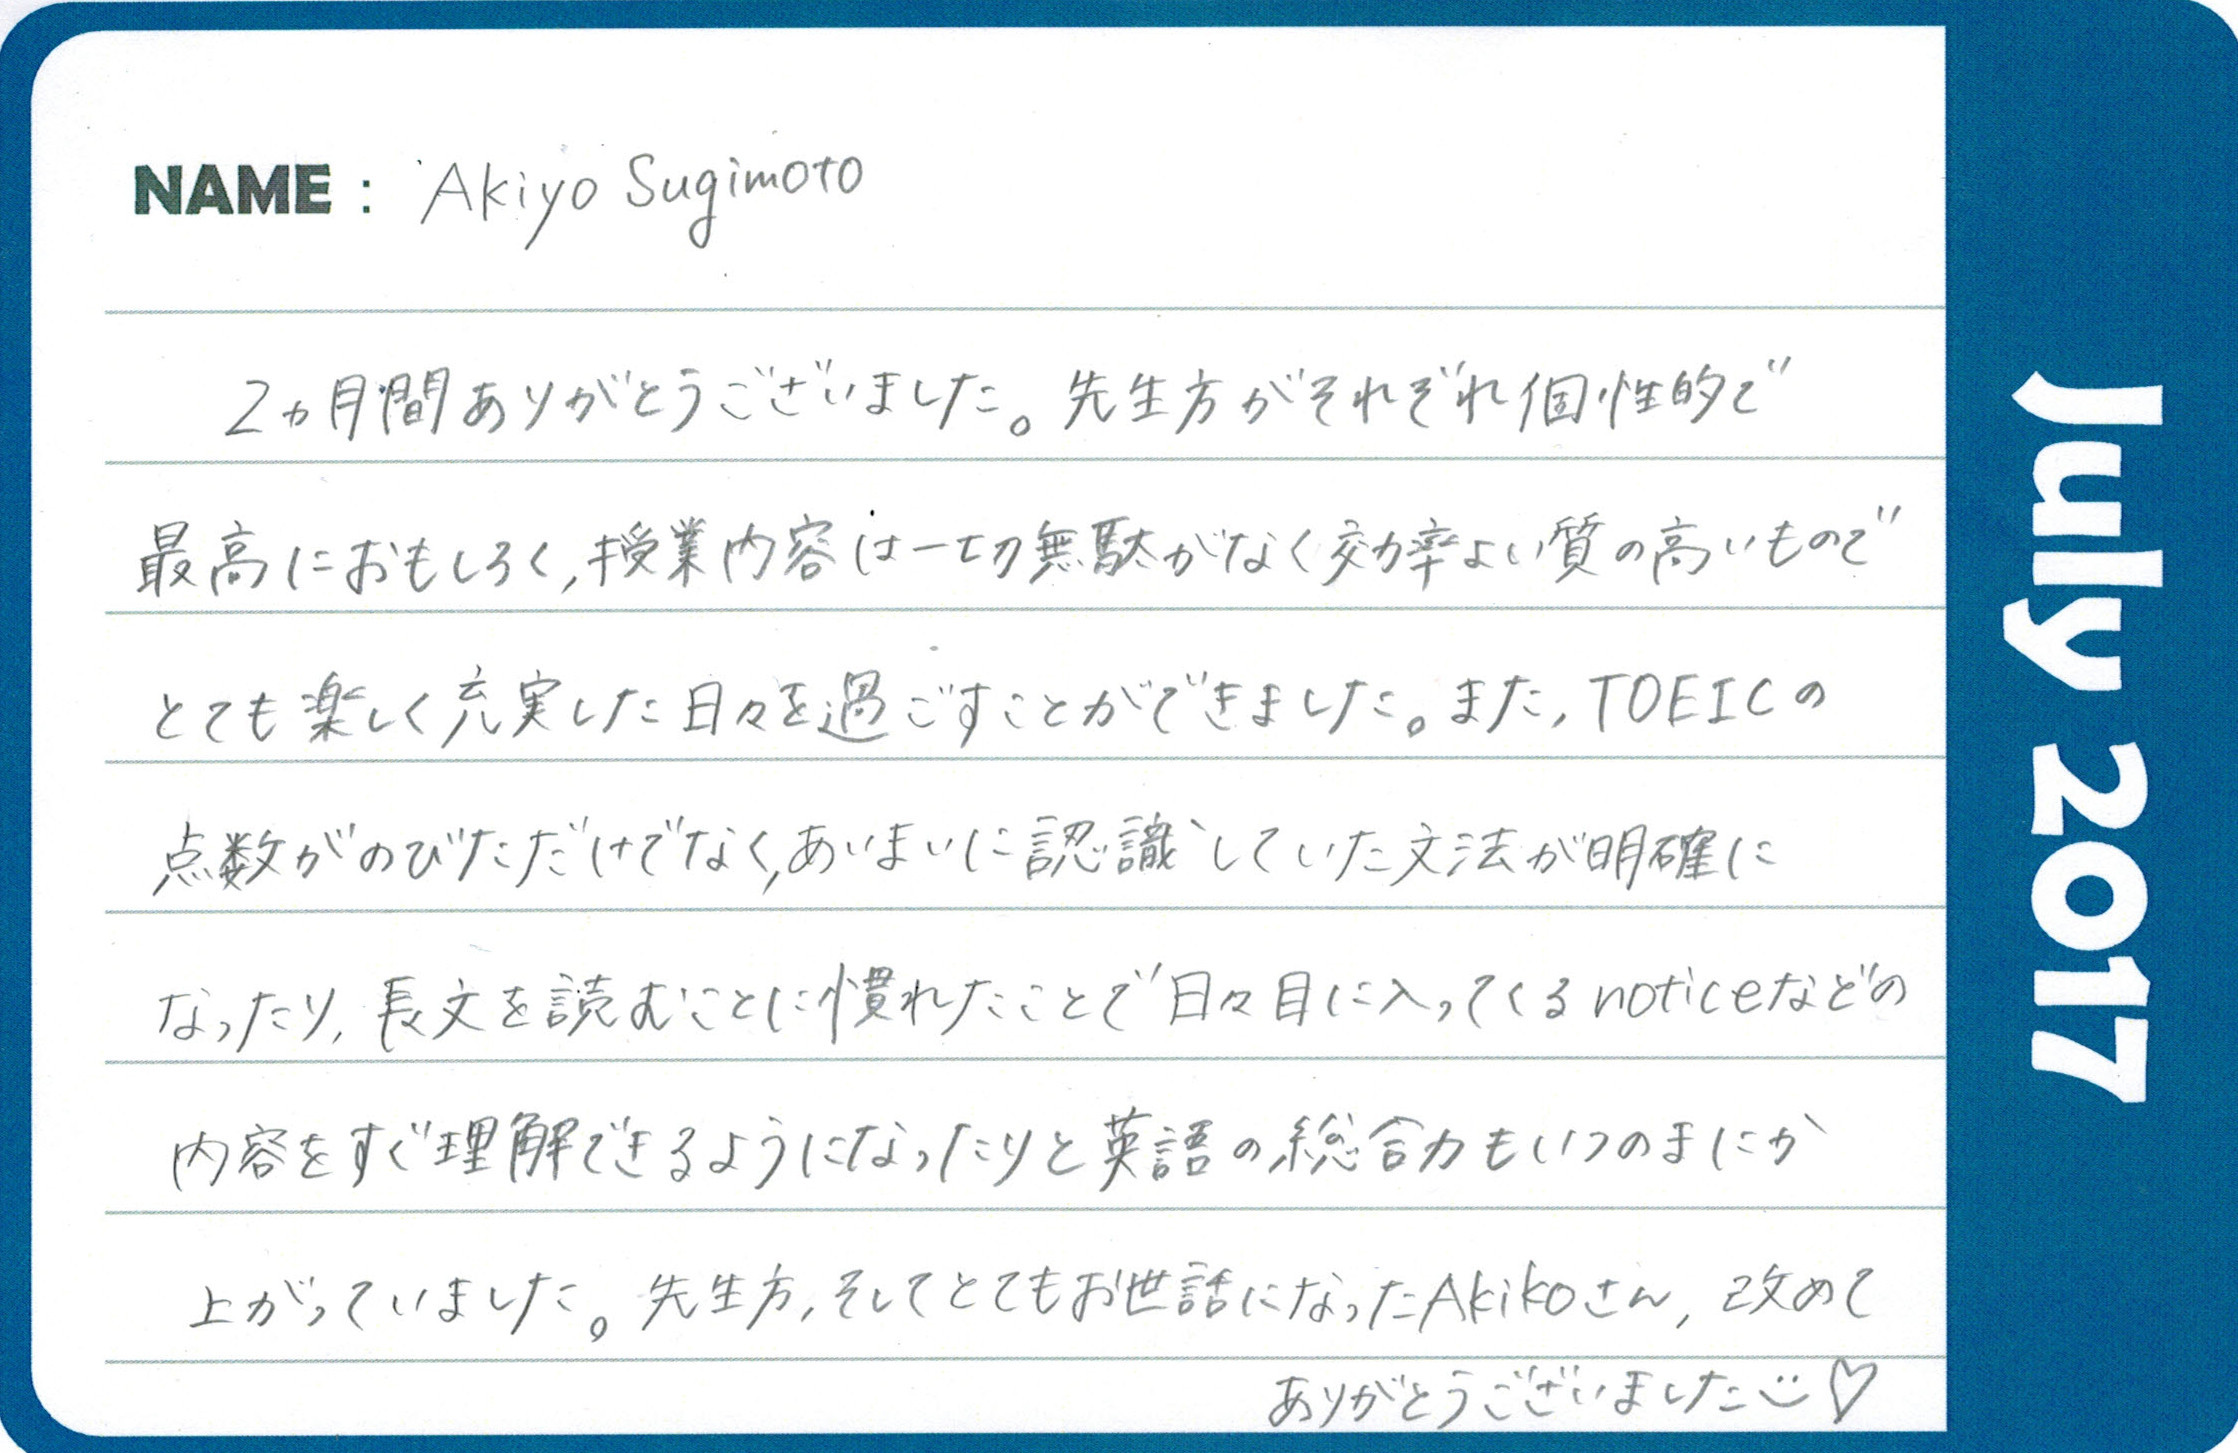 NAME : Akiyo Sugimoto
2ヵ月間ありがとうございました。先生方がそれぞれ個性的で
最高におもしろく,授業内容は一切無駄がなく効率よい質の高いもので
とても楽しく充実した日々を過ごすことができました。また,TOEICの
点数がのびただけでなく,あいまいに認識していた文法が明確に
なったり,長文を読むことに慣れたことで日々目に入ってくるnoticeなどの
内容をすぐ理解できるようになったりと英語の総合力もいつのまにか
上がっていました。先生方,そしてとてもお世話になったAkikoさん,改めて
ありがとうございました
July 2017